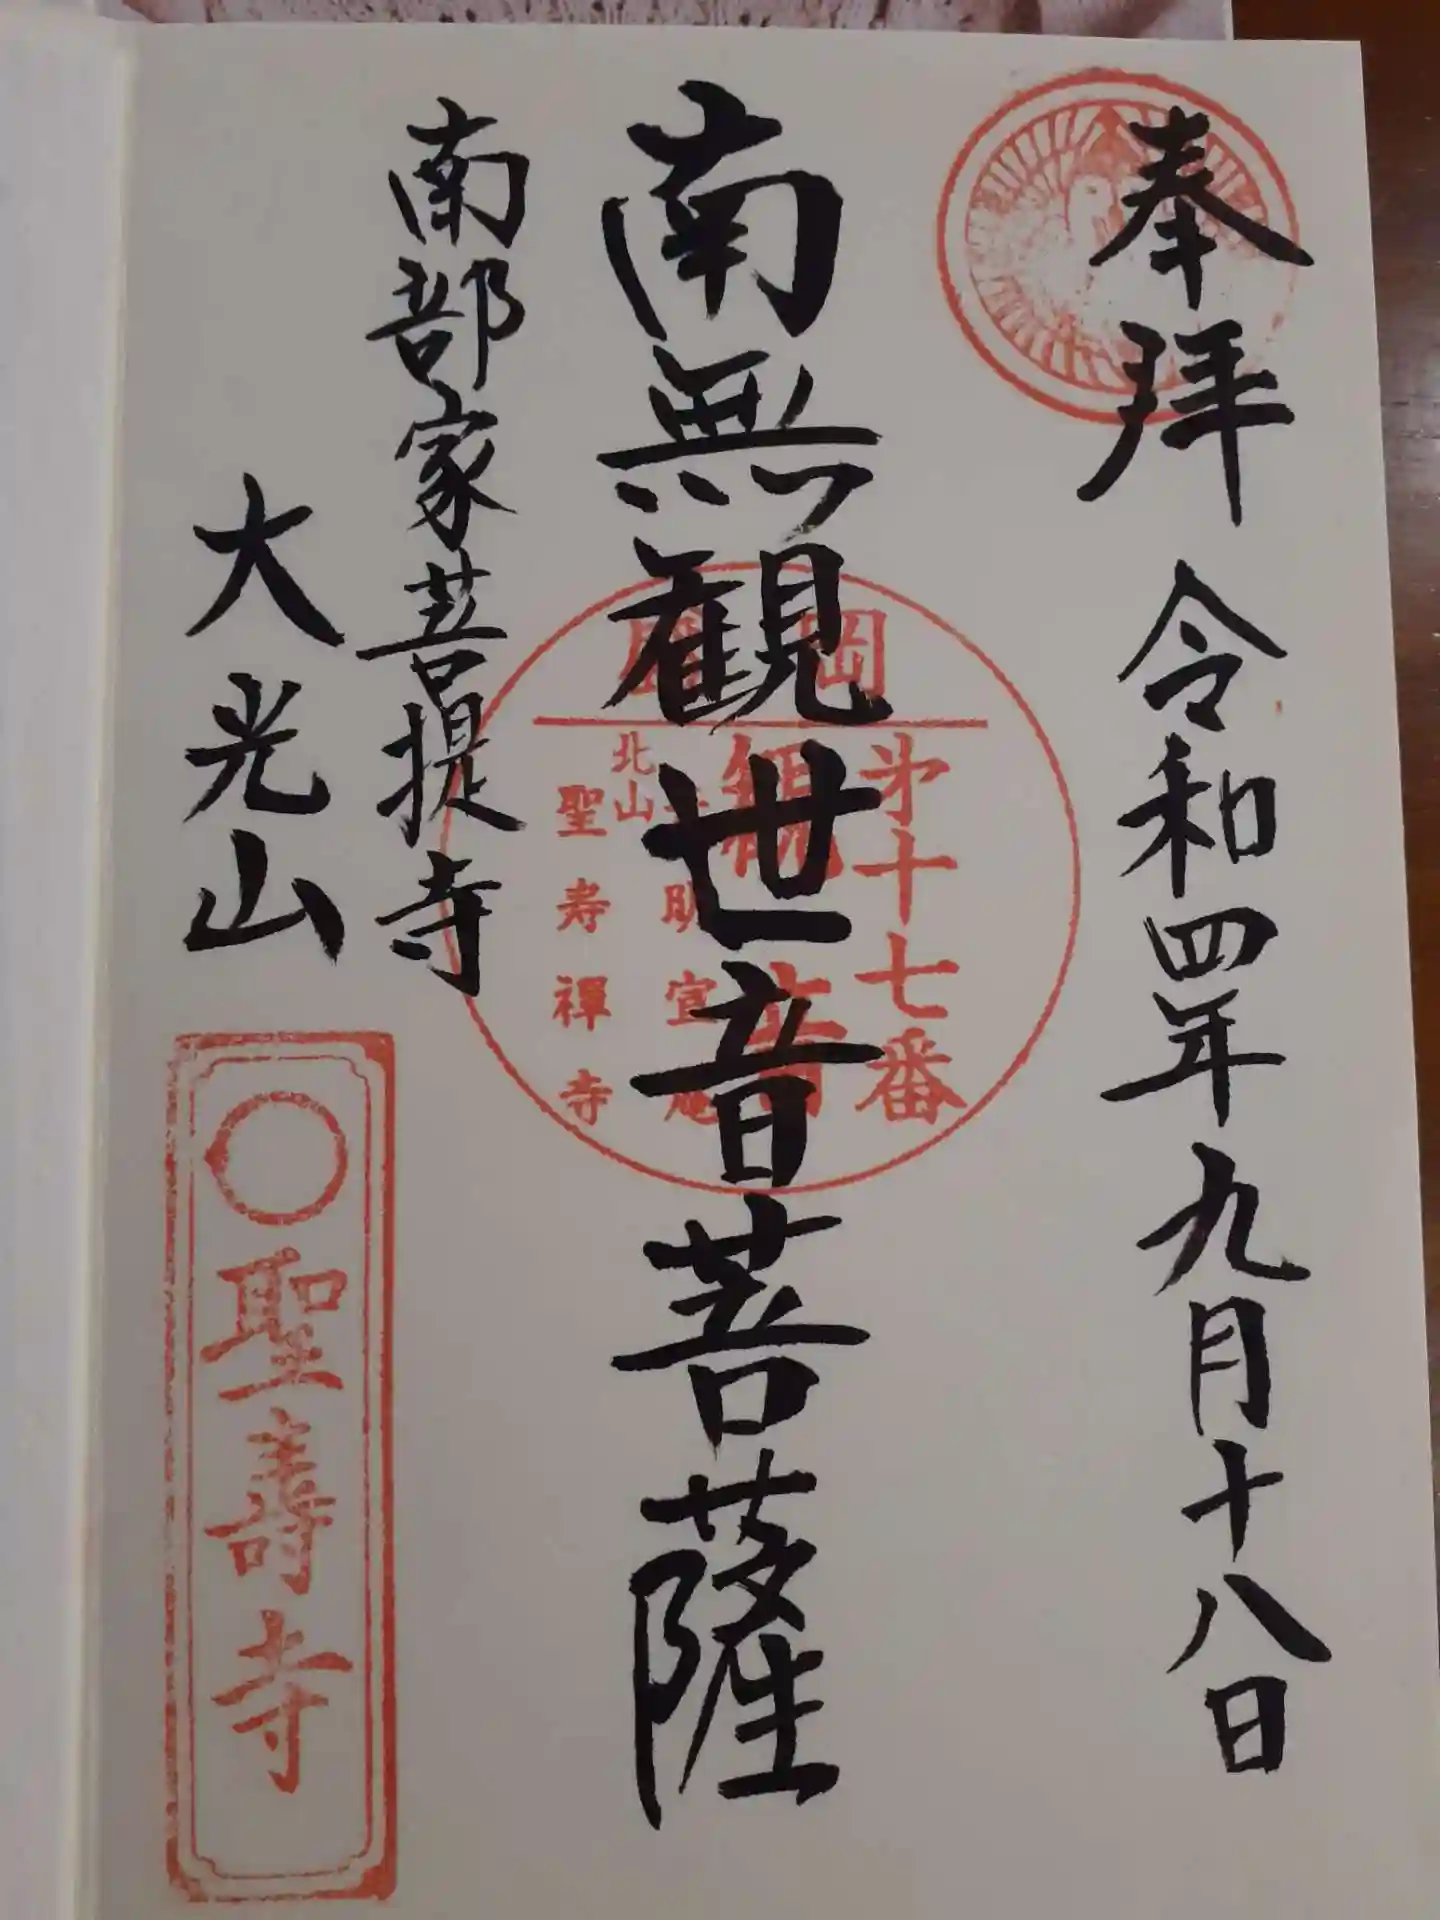 奉拝 令和四年九月十八日
南無観世音菩薩
南部家菩提寺
大光山
聖壽寺
岡
第十七番
観音
北山
聖寿禅寺